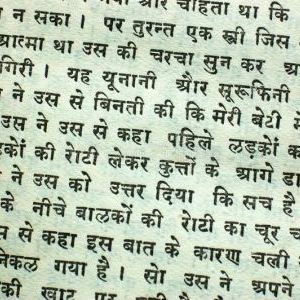 और चाहता था कि
न सका । पर तुरन्त एक स्त्री जिस
आत्मा था उस की चरचा सुन कर आ
गिरी । यह यूनानी और सूरूफिनी
ने उस से बिनती की कि मेरी बेटी में
स ने उस से कहा पहिले लड़कों क
कों की रोटी लेकर कुत्तों के आगे डा
स ने उस को उत्तर दिया कि सच है
के नीचे बालकों की रोटी का चूर च
स से कहा इस बात के कारण चली
नेकल गया है । सो उस ने अपने
की खाट पर